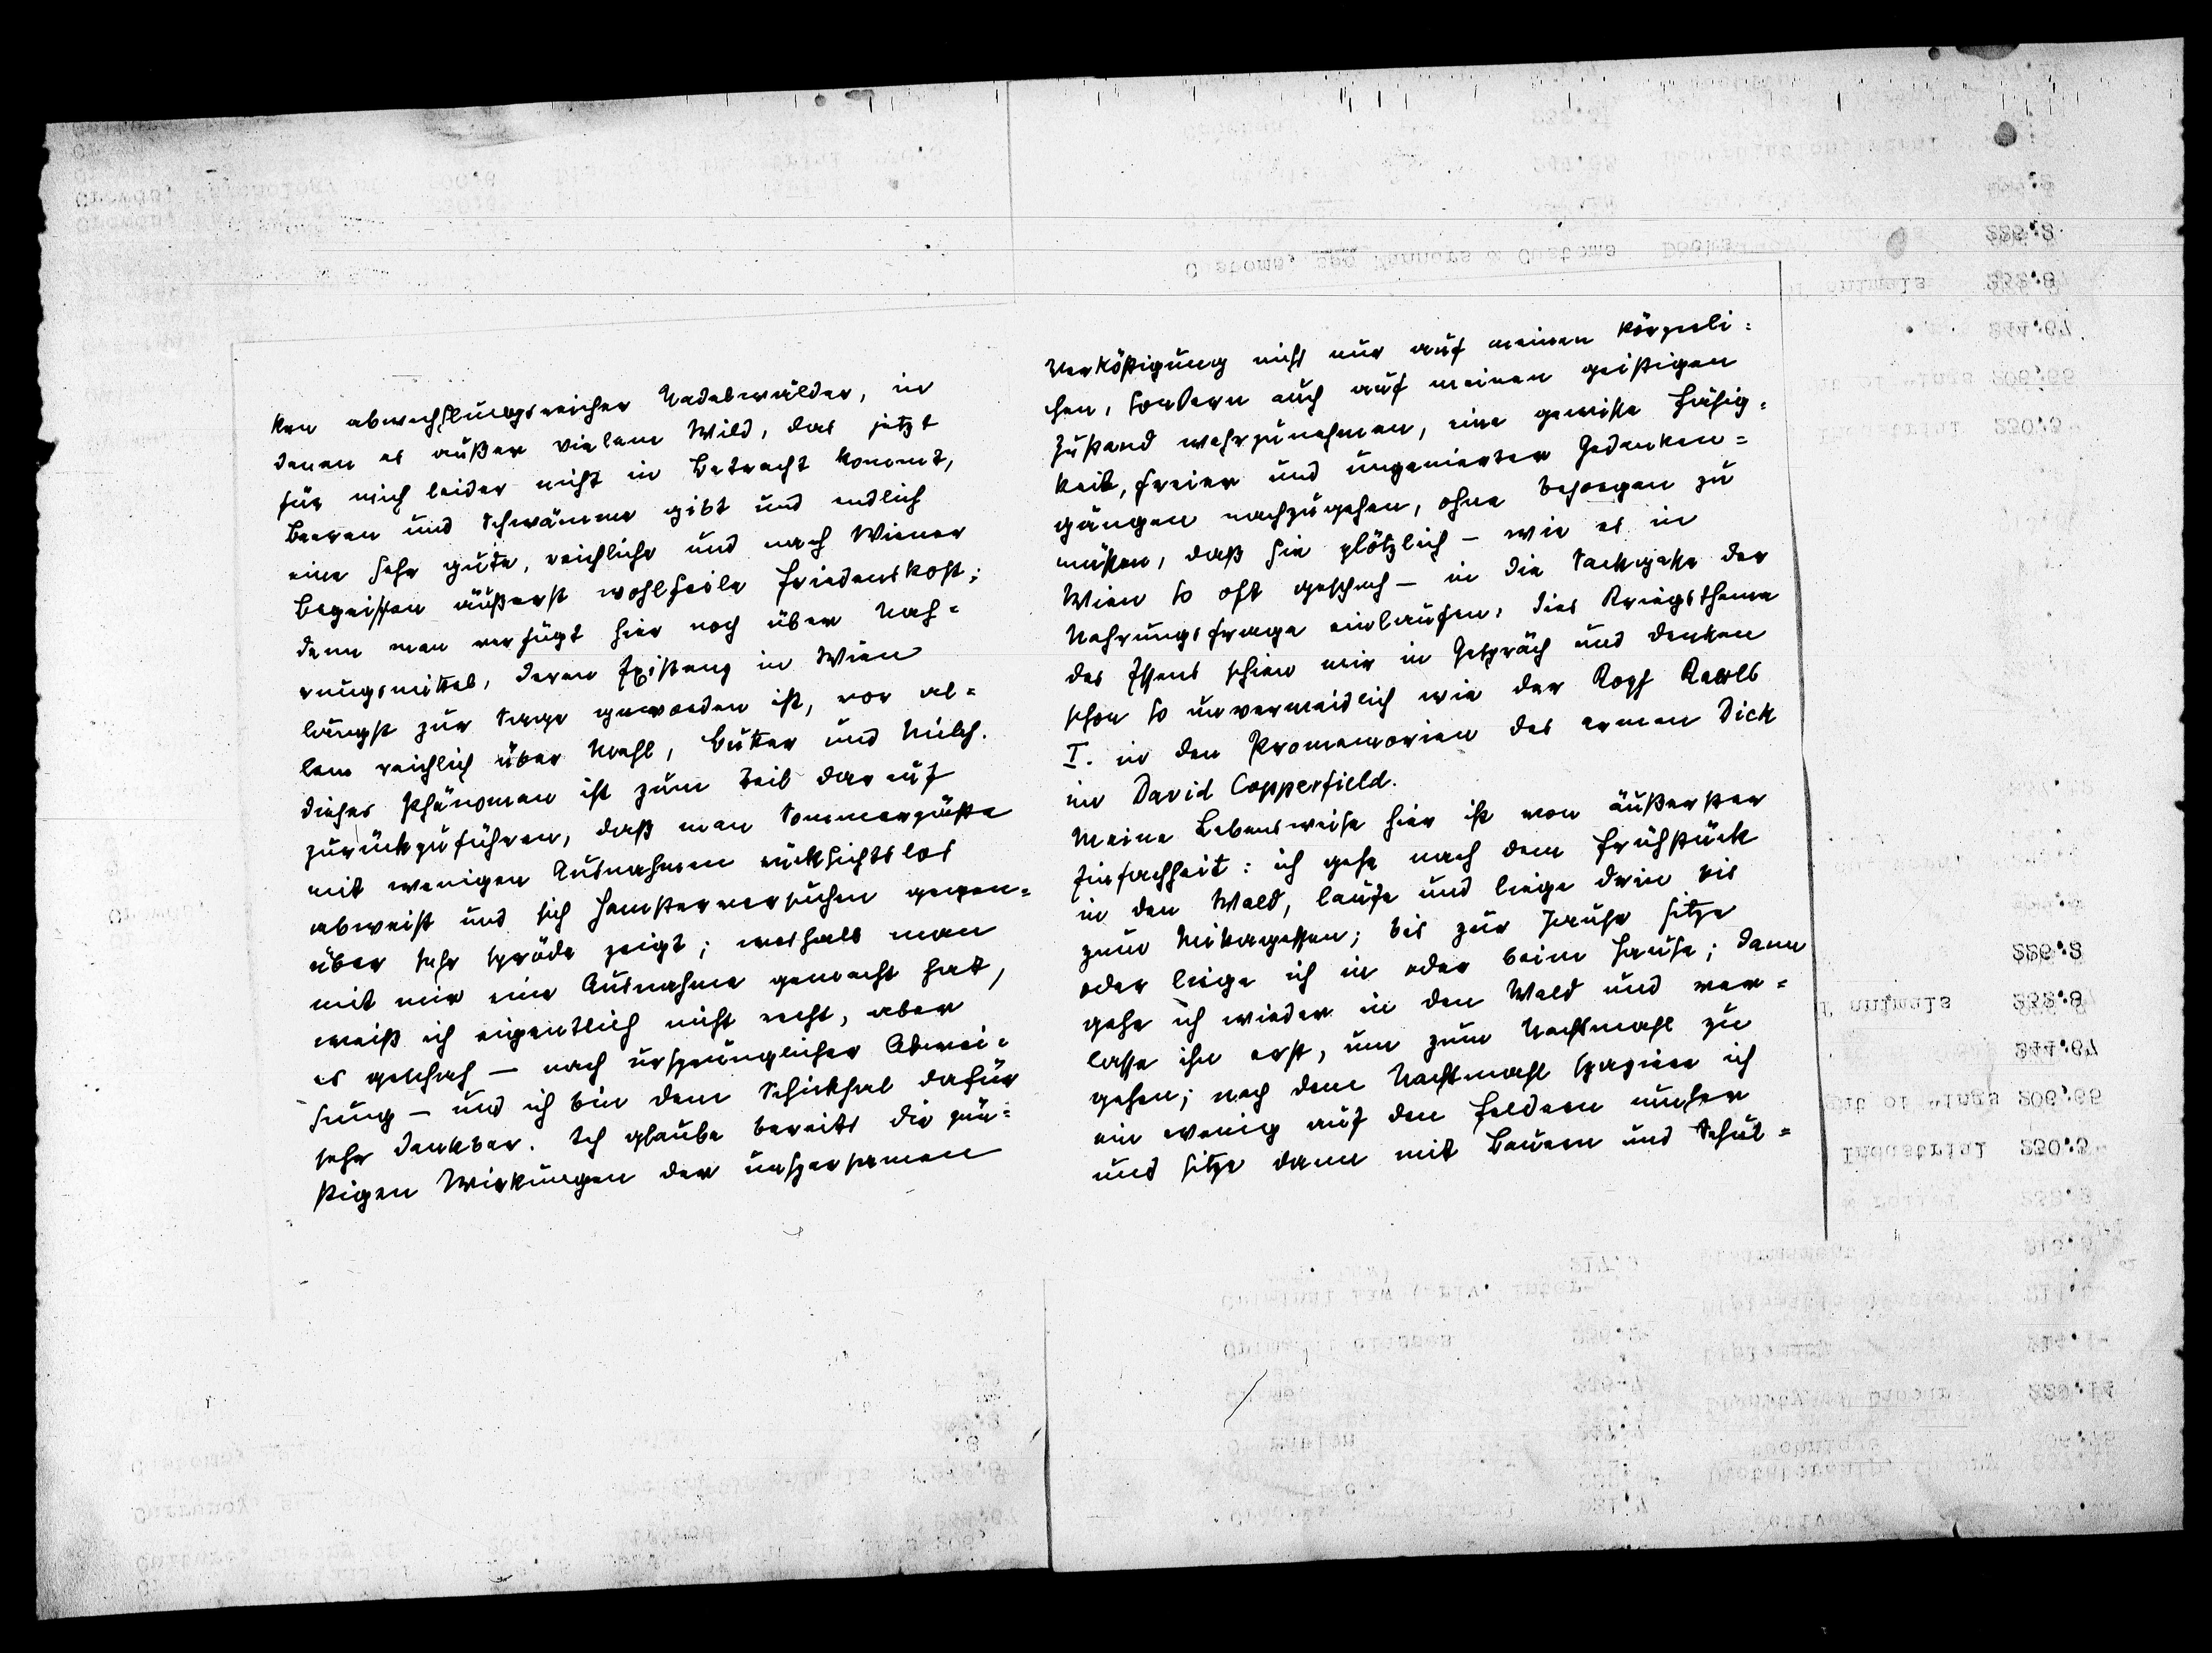 ken abwechslungsreicher Nadelwälder, in
denen es außer vielem Wild, das jetzt
für mich leider nicht in Betracht kommt,
Beeren und Schwämme gibt und endlich
eine sehr gute, reichliche und nach Wiener
Begriffen äußerst wohlfeile Friedenskost;
denn man verfügt hier noch über Nah=
rungsmittel, deren Existenz in Wien
längst zur Sage geworden ist, vor al=
lem reichlich über Mehl, Butter und Milch.
Dieses Phänomen ist zum Teil darauf
zurückzuführen, daß man Sommergäste
mit wenigen Ausnahmen rücksichtslos
abweist und sich Hamsterversuchen gegen=
über sehr spröde zeigt; weshalb man
mit mir eine Ausnahme gemacht hat,
weiß ich eigentlich nicht recht, aber
es geschah — nach ursprünglicher Abwei=
sung — und ich bin dem Schicksal dafür
sehr dankbar. Ich glaube bereits die gün=
stigen Wirkungen der ungesparsamen
Verköstigung nicht nur auf meinen körperli=
chen, sondern auch auf meinen geistigen
Zustand wahrzunehmen, eine gewisse Fähig=
keit, freier und ungenierter Gedanken=
gängen nachzugehen, ohne besorgen zu
müssen, daß sie plötzlich — wie es in
Wien so oft geschah — in die Sackgasse der
Nahrungsfrage einlaufen; dies Kriegsthema
des Essens schien mir in Gespräch und Denken
schon so unvermeidlich wie der Kopf Karls
I. in den Promemorien des armen Dick
im David Copperfield.
Meine Lebensweise hier ist von äußerster
Einfachheit: ich gehe nach dem Frühstück
in den Wald, laufe und liege drin bis
zum Mittagessen; bis zur Jause sitze
oder liege ich in oder beim Hause; dann
gehe ich wieder in den Wald und ver=
lasse ihn erst, um zum Nachtmahl zu
gehen; nach dem Nachtmahl spaziere ich
ein wenig auf den Feldern umher
und sitze dann mit Bauern und Schul=